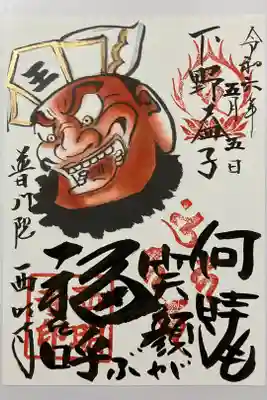 令和六年
五月五日
下野益子
王
何時も
笑顔が
福
呼ぶ
普門院
西明寺